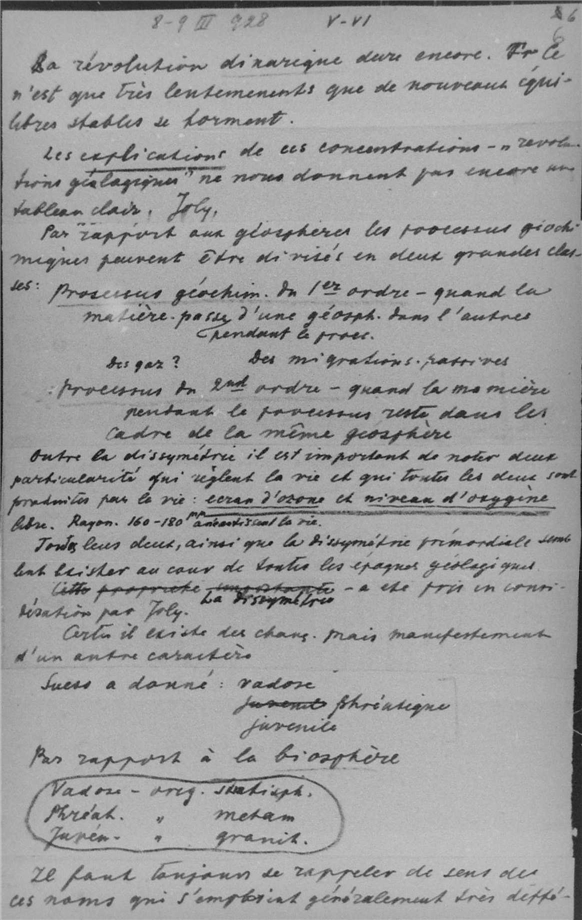 8-9 III 928 V-VI 6
6
La révolution dinarique dure encore. Ce
n'est que très lentements que de nouveaux équi-
libres stables se forment.
Les explications de ces concentrations - "revolu-
tions géologiques" ne nous donnent pas encore un
tableau clair, Joly,
Par rapport aux géosphères les processus géochi-
miques peuvent être divisés en deux grandes clas-
ses: Processus géochim. du 1er ordre - quand la
matière passe d'une géosph. dans l'autres
pendant le proces.
Des gaz? Des migrations passives
:processus du 2nd ordre - quand la
pendant le processus reste dans les
cadre de la même geosphère
Outre la dissymétrie il est important de noter deux
particularité qui règlent la vie et qui toutes les deux sont
produites par la vie: ecran d'ozone et niveau d'oxygine
libre. Rayon. 160-180 μμ la vie.
Toutes leus deux, ainsi que la dissymétrie primordiale semb
lent exister au cour de toutes les époques géologiques.
Cette propriete importante - a eté pris en consi-
La dissymétrie
dération par Joly.
Certes il existe des chang. mais manifestement
d'un autre caractère
Suess a donné: vadose
juvenile phréatique
juvenile
Par rapport à la biosphère
Vadose - orig. statisph.
Phréat. " metam
Juvén. - " granit.
Il faut toujours se rappeler de sens des
ces noms qui s'emploint généralement très diffé-